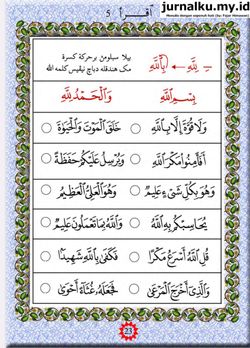 jurnalku.my.id
Menulis dengan sepenuh hati (by: Fajar Himawan)
أقرأ 5
بيلا سبلومن برحركة كسرة
مک هندقله دباچ تيڤيس كلمه الله
لِلَّهِ ← أَبِاللَّهِ
بِسْمِ اللَّهِ وَالْحَمْدُ لِلَّهِ
وَلَا قُوَّةَ إِلَّا بِاللَّهِ ○ خَلَقَ الْمَوْتَ وَالْحَيَوٰةَ ○
أَفَأَمِنُوا مَكْرَ اللَّهِ ○ وَيُرْسِلُ عَلَيْكُمْ حَفَظَةً ○
وَهُوَ بِكُلِّ شَيْءٍ عَلِيمٌ ○ وَهُوَ الْعَلِيُّ الْعَظِيمُ ○
يُحَاسِبْكُمْ بِهِ اللَّهُ ○ وَاللَّهُ بِمَا تَعْمَلُونَ عَلِيمٌ ○
قُلِ اللَّهُ أَسْرَعُ مَكْرًا ○ فَكَفَىٰ بِاللَّهِ شَهِيدًا ○
وَالَّذِي أَخْرَجَ الْمَرْعَىٰ ○ فَجَعَلَهُ غُثَاءً أَحْوَىٰ ○
23